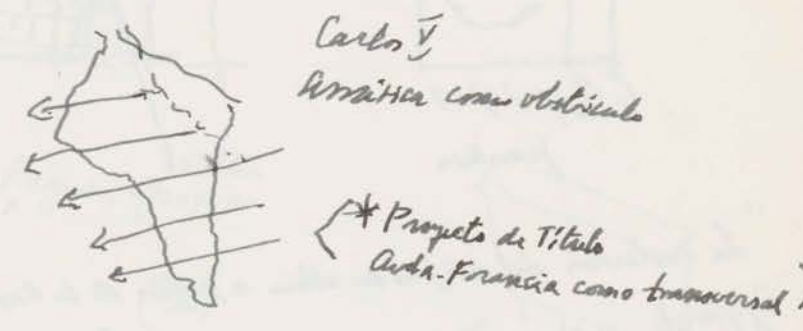 Carlos V
América como obstáculo
* Proyecto de Título
Avda. Francia como transversal